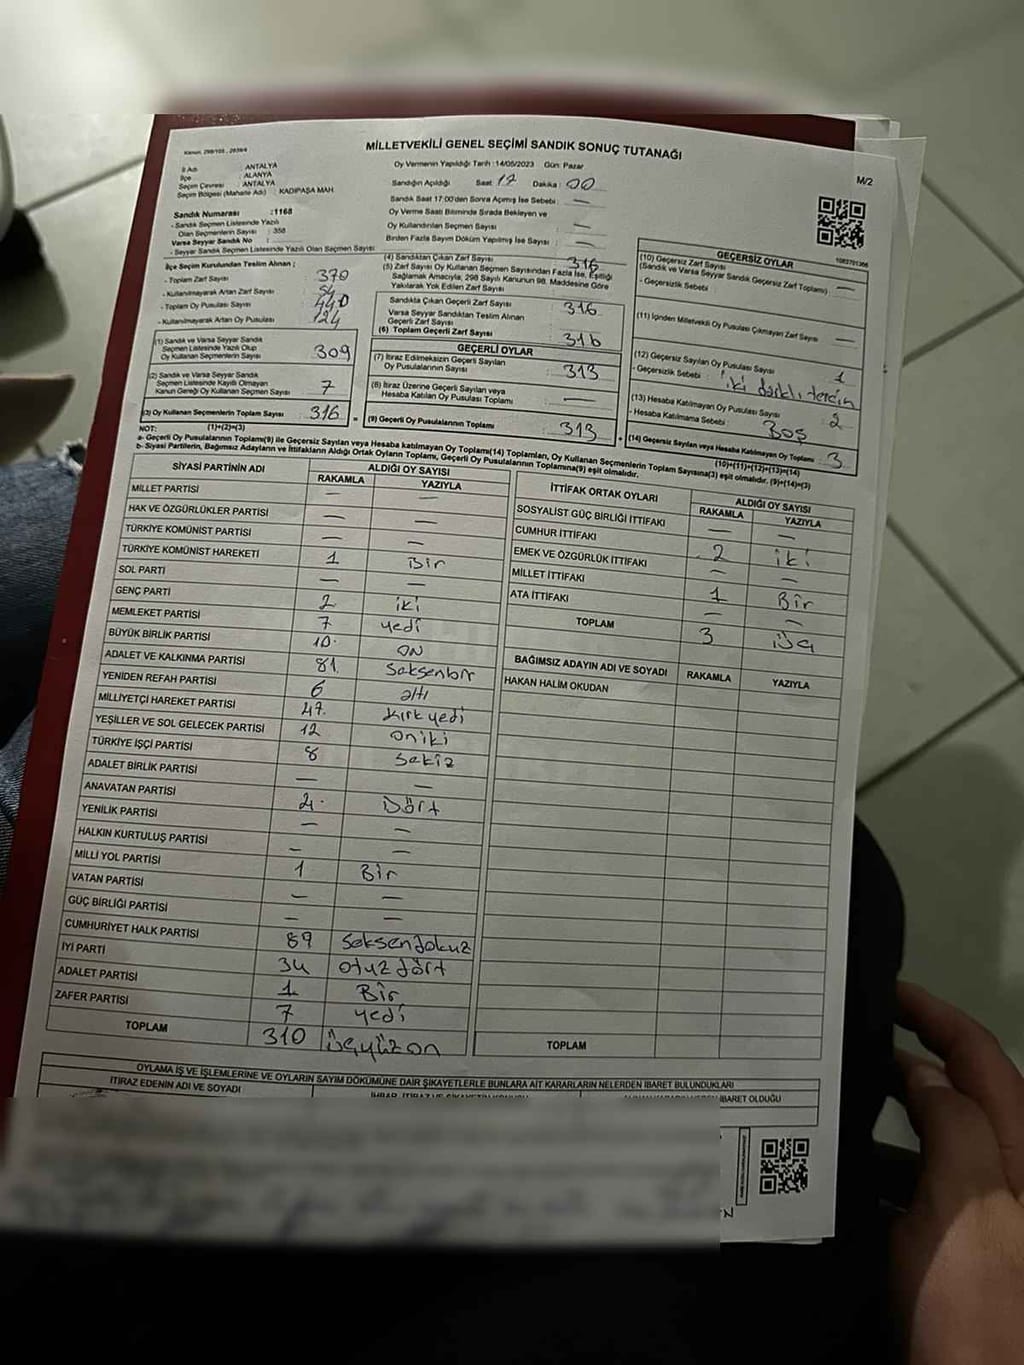 MİLLETVEKİLİ GENEL SEÇİMİ SANDIK SONUÇ TUTANAĞI
M/2
İl Adı : ANTALYA
İlçe : ALANYA
Seçim Çevresi : ANTALYA
Seçim Bölgesi (Mahalle Adı) : KADIPAŞA MAH.
Sandık Numarası :1168
- Sandık Seçmen Listesinde Yazılı
Olan Seçmenlerin Sayısı : 358
Varsa Seyyar Sandık No :
- Seyyar Sandık Seçmen Listesinde Yazılı Olan Seçmen Sayısı:
Oy Vermenin Yapıldığı Tarih :14/05/2023 Gün: Pazar
Sandığın Açıldığı Saat 17 Dakika : 00
Sandık Saat 17:00'den Sonra Açımış İse Sebebi : —
Oy Verme Saati Bitiminde Sırada Bekleyen ve
Oy Kullandırılan Seçmen Sayısı : —
Birden Fazla Sayım Döküm Yapılmış İse Sayısı : —
İlçe Seçim Kurulundan Teslim Alınan ;
- Toplam Zarf Sayısı : 370
- Kullanılmayarak Artan Zarf Sayısı : 54
- Toplam Oy Pusulası Sayısı : 440
- Kullanılmayarak Artan Oy Pusulası : 124
(1) Sandık ve Varsa Seyyar Sandık
Seçmen Listesinde Yazılı Olup
Oy Kullanan Seçmenlerin Sayısı : 309
(2) Sandık ve Varsa Seyyar Sandık
Seçmen Listesinde Kayıtlı Olmayan
Kanun Gereği Oy Kullanan Seçmen Sayısı : 7
(3) Oy Kullanan Seçmenlerin Toplam Sayısı : 316
(1)+(2)=(3)
(4) Sandıktan Çıkan Zarf Sayısı : 316
(5) Zarf Sayısı Oy Kullanan Seçmen Sayısından Fazla İse, Eşitliği
Sağlamak Amacıyla, 298 Sayılı Kanunun 98. Maddesine Göre
Yakılarak Yok Edilen Zarf Sayısı : —
Sandıkta Çıkan Geçerli Zarf Sayısı : 316
Varsa Seyyar Sandıktan Teslim Alınan
Geçerli Zarf Sayısı
(6) Toplam Geçerli Zarf Sayısı : 316
GEÇERLİ OYLAR
(7) İtiraz Edilmeksizin Geçerli Sayılan
Oy Pusulalarının Sayısı : 313
(8) İtiraz Üzerine Geçerli Sayılan veya
Hesaba Katılan Oy Pusulası Toplamı : —
(9) Geçerli Oy Pusulalarının Toplamı : 313
GEÇERSİZ OYLAR
(10) Geçersiz Zarf Sayısı
(Sandık ve Varsa Seyyar Sandık Geçersiz Zarf Toplamı) : —
- Geçersizlik Sebebi :
(11) İçinden Milletvekili Oy Pusulası Çıkmayan Zarf Sayısı : —
(12) Geçersiz Sayılan Oy Pusulası Sayısı : 1
- Geçersizlik Sebebi : iki farklı tercin
(13) Hesaba Katılmayan Oy Pusulası Sayısı : 2
- Hesaba Katılmama Sebebi : Boş
(14) Geçersiz Sayılan veya Hesaba Katılmayan Oy Toplamı : 3
(10)+(11)+(12)+(13)=(14)
NOT:
a- Geçerli Oy Pusulalarının Toplamı(9) ile Geçersiz Sayılan veya Hesaba katılmayan Oy Toplamı(14) Toplamları, Oy Kullanan Seçmenlerin Toplam Sayısına(3) eşit olmalıdır. (9)+(14)=(3)
b- Siyasi Partilerin, Bağımsız Adayların ve İttifakların Aldığı Ortak Oyların Toplamı, Geçerli Oy Pusulalarının Toplamına(9) eşit olmalıdır.
SİYASİ PARTİNİN ADI ALDIĞI OY SAYISI
RAKAMLA YAZIYLA
MİLLET PARTİSİ — —
HAK VE ÖZGÜRLÜKLER PARTİSİ — —
TÜRKİYE KOMÜNİST PARTİSİ — —
TÜRKİYE KOMÜNİST HAREKETİ 1 Bir
SOL PARTİ — —
GENÇ PARTİ 2 iki
MEMLEKET PARTİSİ 7 yedi
BÜYÜK BİRLİK PARTİSİ 10 ON
ADALET VE KALKINMA PARTİSİ 81 Seksenbir
YENİDEN REFAH PARTİSİ 6 altı
MİLLİYETÇİ HAREKET PARTİSİ 47 Kırk yedi
YEŞİLLER VE SOL GELECEK PARTİSİ 12 oniki
TÜRKİYE İŞÇİ PARTİSİ 8 Sekiz
ADALET BİRLİK PARTİSİ — —
ANAVATAN PARTİSİ 4 Dört
YENİLİK PARTİSİ — —
HALKIN KURTULUŞ PARTİSİ — —
MİLLİ YOL PARTİSİ 1 Bir
VATAN PARTİSİ — —
GÜÇ BİRLİĞİ PARTİSİ — —
CUMHURİYET HALK PARTİSİ 89 Seksendokuz
İYİ PARTİ 34 otuz dört
ADALET PARTİSİ 1 Bir
ZAFER PARTİSİ 7 yedi
TOPLAM 310 üçyüzon
İTTİFAK ORTAK OYLARI ALDIĞI OY SAYISI
RAKAMLA YAZIYLA
SOSYALİST GÜÇ BİRLİĞİ İTTİFAKI — —
CUMHUR İTTİFAKI 2 iki
EMEK VE ÖZGÜRLÜK İTTİFAKI — —
MİLLET İTTİFAKI 1 Bir
ATA İTTİFAKI — —
TOPLAM 3 üç
BAĞIMSIZ ADAYIN ADI VE SOYADI RAKAMLA YAZIYLA
HAKAN HALİM OKUDAN
TOPLAM
OYLAMA İŞ VE İŞLEMLERİNE VE OYLARIN SAYIM DÖKÜMÜNE DAİR ŞİKAYETLERLE BUNLARA AİT KARARLARIN NELERDEN İBARET BULUNDUKLARI
İTİRAZ EDENİN ADI VE SOYADI
İBARET OLDUĞU